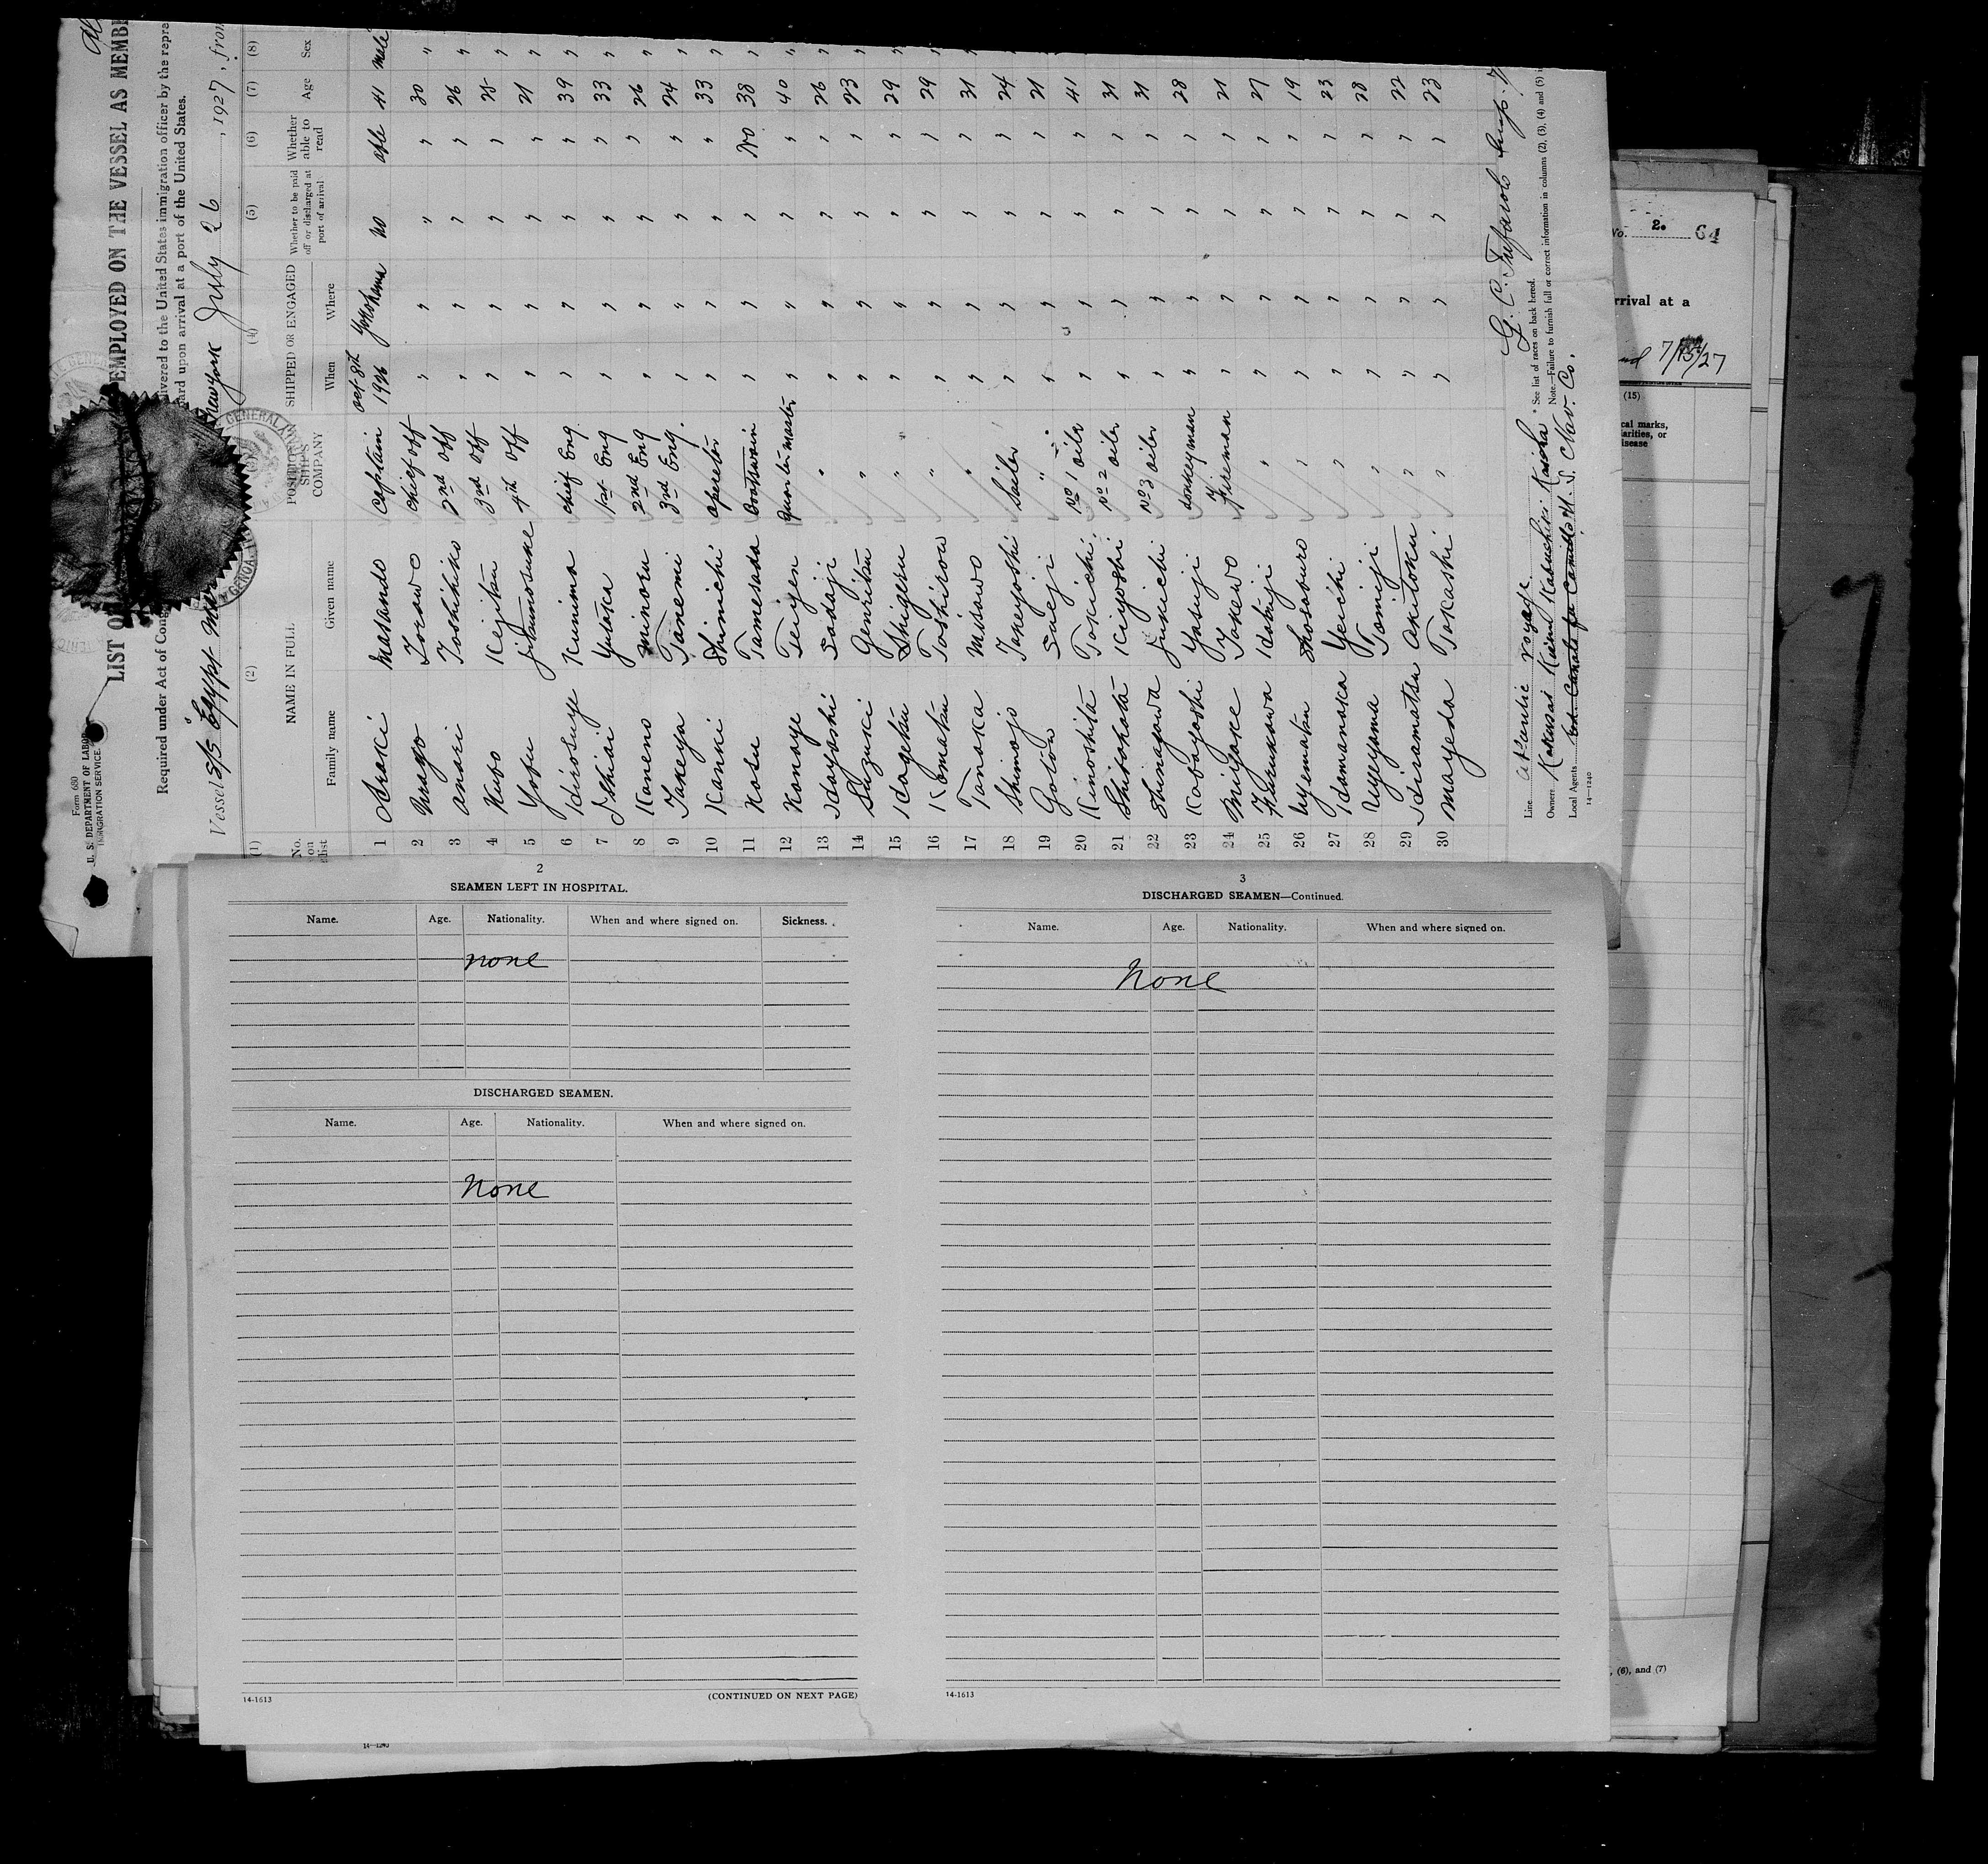 Form 680
U. S. DEPARTMENT OF LABOR
IMMIGRATION SERVICE.
LIST O EMPLOYED ON THE VESSEL AS MEMB
Required under Act of Cong livered to the United States immigration officer by the repre
ard upon arrival at a port of the United States.
Vessel S/S Egypt New York July 26, 1927, from
(1) (2) (4) (5) (6) (7) (8)
No. on list NAME IN FULL POSITION SHIP'S COMPANY SHIPPED OR ENGAGED Whether to be paid off or discharged at port of arrival Whether able to read Age Sex
Family name Given name When Where
1 Araki Masando captain oct 8th 1926 Yokohama no able 41 male
2 Torawo chief off " " " " 30 "
3 Anari Toshihiko 2nd off " " " " 26 "
4 Kubo Kejitsu 3rd off " " " " 25 "
5 4th off " " " " 21 "
6 Hirosuye Kunima chief Eng " " " " 39 "
7 Ishiai Yutaka 1st Eng " " " " 33 "
8 Kaneno Minoru 2nd Eng " " " " 26 "
9 Takeya Tanemi 3rd Eng. " " " " 24 "
10 Kanki Shinichi operator " " " " 33 "
11 Kosu Tamesada boatswain " " " No 38 "
12 Konoye Teijen quarter master " " " " 40 "
13 Hayashi Sadaji " " " " " 26 "
14 Suzuki Genritsu " " " " " 23 "
15 Kagetsu Shigeru " " " " " 29 "
16 Komatsu Toshirow " " " " " 29 "
17 Tanaka Misawo " " " " " 31 "
18 Shimojo Takeyoshi Sailer " " " " 24
19 Gotow Saeji " " " " " 21
20 Kinoshita Tokichi No 1 oiler " " " " 41
21 Shibahata Kiyoshi No 2 oiler " " " " 31
22 Shinagowa Jukichi No 3 oiler " " " " 31
23 Kobayashi Yasuji donkeyman " " " " 28
24 Miyake Takewo Fireman " " " " 21
25 Furukawa " " " " " 27
26 Uyematsu Shosaburo " " " " " 19
27 Hamanaka Yeichi " " " " " 23
28 Uyeyama Tomiji " " " " " 28
29 Hiramatsu Akitoku " " " " " 22
30 Mayeda Takashi " " " " " 23
Line Atlantic voyage
Owners Kokusai Kisen Kabushiki Kaisha
Local Agents U. S. Nav. Co.
* See list of races on back hereof.
Note.—Failure to furnish full or correct information in columns (2), (3), (4) and (5) i
14—1240
No. 2. 64
rrival at a
7/ /27
(15)
cal marks,
larities, or
isease
, (6), and (7)
2
SEAMEN LEFT IN HOSPITAL.
Name. Age. Nationality. When and where signed on. Sickness.
none
DISCHARGED SEAMEN.
Name. Age. Nationality. When and where signed on.
None
14-1613 (CONTINUED ON NEXT PAGE)
3
DISCHARGED SEAMEN—Continued.
Name. Age. Nationality. When and where signed on.
None
14-1613
14—1240